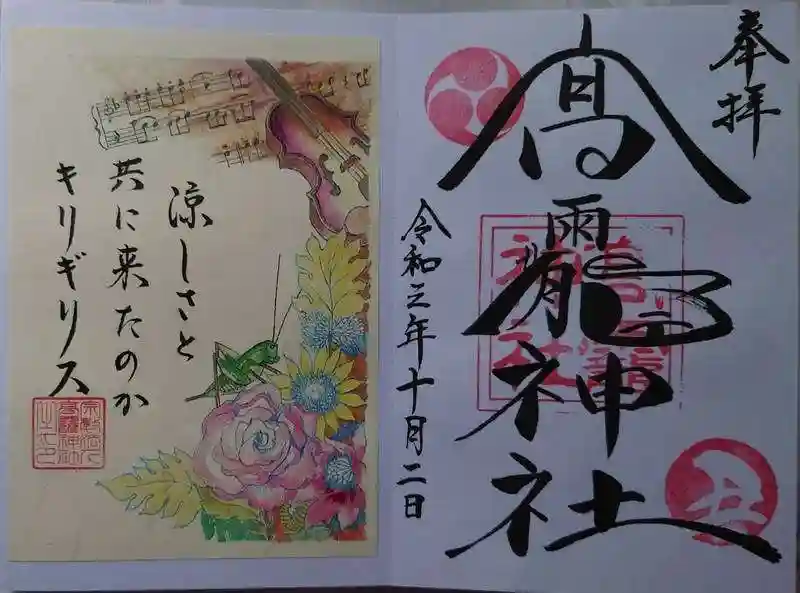 奉拝
高龗神社
令和元年十月二日
丑
涼しさと
共に来たのか
キリギリス